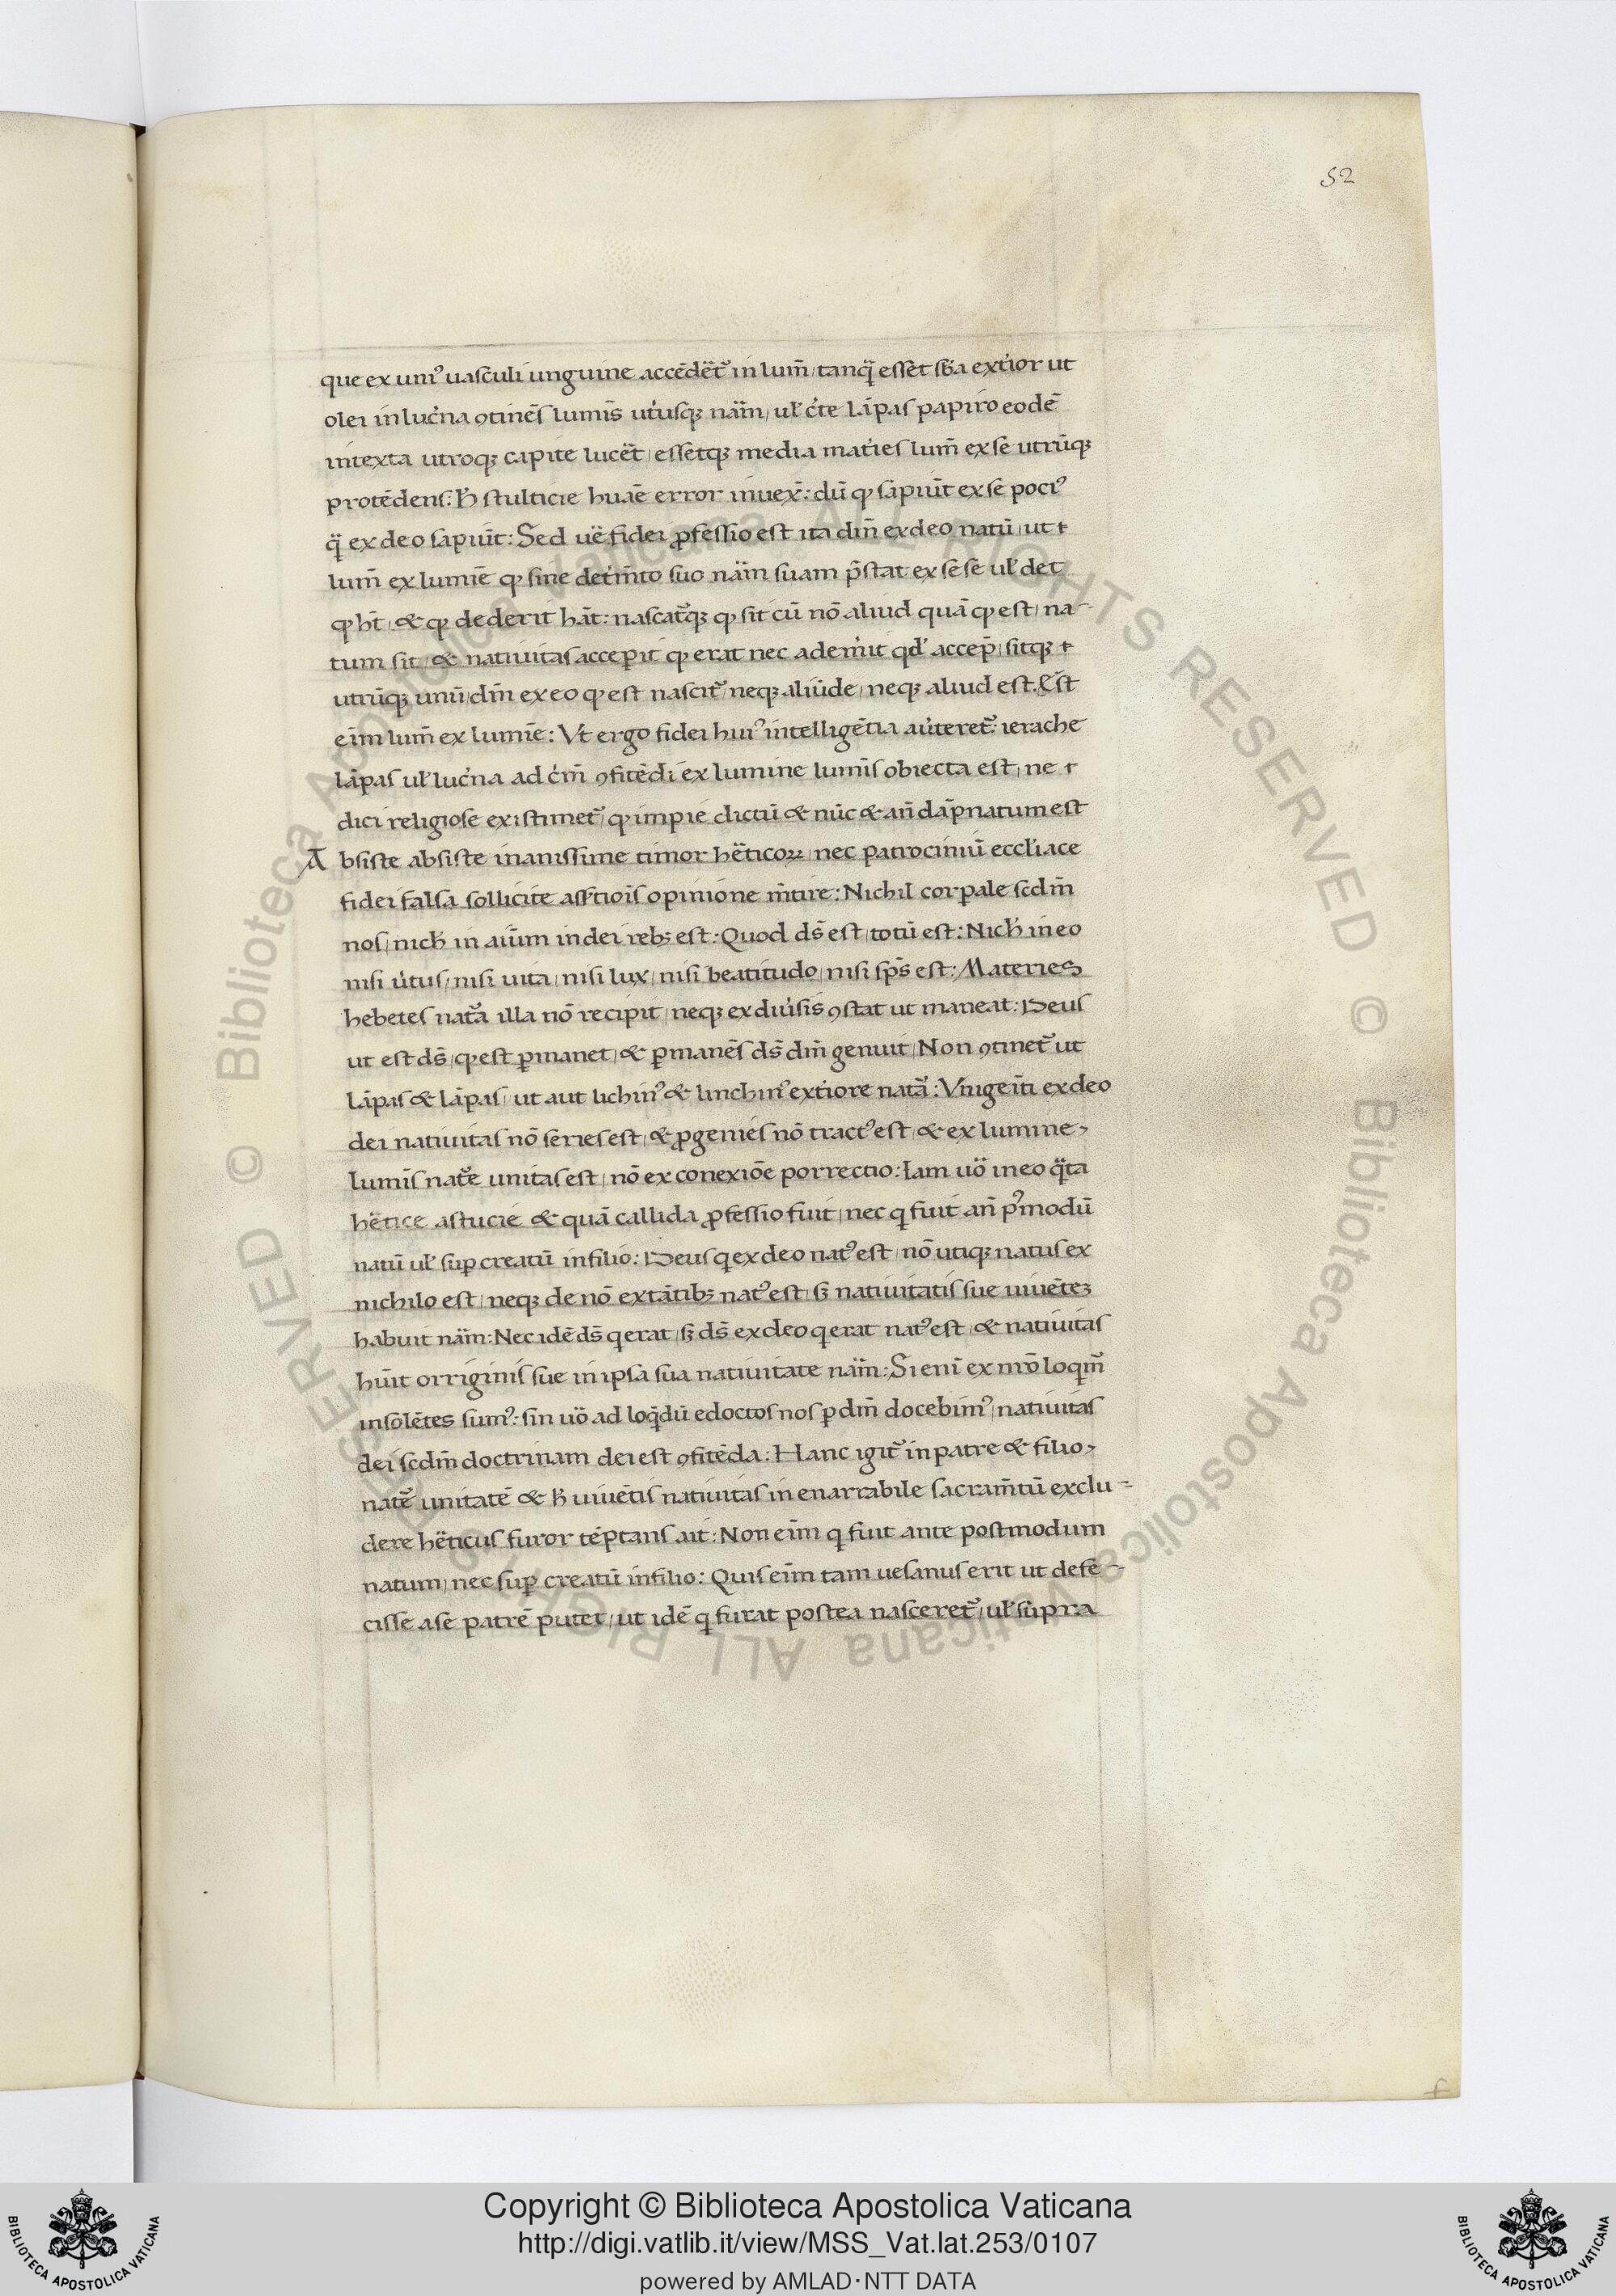 52
que ex uni᾽ uasculi unguine accēdet᷑ in lum̄, tanq̈ esset sb̄a exti᾽or ut
olei in luc᾽na ꝯtinēs lumīs ut᾽iusq; näm, ul᾽ c᾽te lāpas papiro eodē
intexta utroq; capite lucēt, essetq; media mat᾽ies lum̄ ex se utrūq;
protēdens: h̄ stulticie huāe error inuex̄: dū qꝫ sapiūt ex se poci᾽
q̈ ex deo sapiūt: Sed uë fidei ꝓfessio est ita dm̄ ex deo natū, ut t
lum̄ ex lumīe qꝫ sine det᾽m̄to suo näm suam p̄stat ex sese ul᾽ det
qꝫ ht̄, & qꝫ dederit hāt: nascat᷑q; qꝫ sit cū nō aliud quā qꝫ est, na-
tum sit, & natiuitas acceꝑit qꝫ erat nec adem᾽it qd᾽ accep̄, sitq; t
utrūq; unū, dm̄ ex eo qꝫ est nascit᷑, neq; aliūde, neq; aliud est. Est
eīm lum̄ ex lumīe: Vt ergo fidei hui᾽ intelligētia au᾽teret᷑: ierache
lāpas ul᾽ luc᾽na ad c᾽m̄ ꝯfitēdi ex lumine lumīs obiecta est, ne t
dici religiose existimet᷑, qꝫ impie dictū & nūc & an̄ dāpnatum est
Absiste absiste inanissime timor hëticoꝝ, nec patrociniū eccl᾽iace
fidei falsa sollicite ass᾽tiois opinione m̄tire: Nichil corꝑale scdm̄
nos, nich᾽ in aiūm in dei reb; est: Quod ds̄ est, totū est: Nich᾽ in eo
nisi u᾽tus, nisi uita, nisi lux, nisi beatitudo, nisi sp̄s est: Materies
hebetes nat᷑ā illa nō recipit, neq; ex diu᾽sis ꝯstat ut maneat: Deus
ut est ds̄, qꝫ est ꝑmanet, & ꝑmanēs ds̄ dm̄ genuit, Non ꝯtinet᷑ ut
lāpas & lāpas, ut aut lichin᾽ & linchin᾽ exti᾽ore nat᷑ā: Vnigeīti ex deo
dei natiuitas nō series est, & ꝓgenies nō tract᾽ est, & ex lumine,
lumīs nat᷑e unitas est, nō ex conexiōe porrectio: Iam uö in eo q̈ta
hëtice astucie & quā callida ꝓfessio fuit, nec q fuit an̄ p᾽modū
natū ul᾽ suꝑ creatū in filio: Deus q ex deo nat᾽ est, nō utiq; natus ex
nichilo est, neq; de nō extātib; nat᾽ est, sꝫ natiuitatis sue uiuētez
habuit näm: Nec idē ds̄ q erat, sꝫ ds̄ ex deo q erat nat᾽ est, & natiuitas
hūit orriginis sue in ipsa sua natiuitate näm: Si enī ex nr̄o loqm᷑
insolētes sum᾽: sin uö ad loq̄dū edoctos nos ꝑ dm̄ docebim᾽, natiuitas
dei scdm̄ doctrinam dei est ꝯfitēda: Hanc igit᷑ in patre & filio,
nat᷑e unitatē & h̄ uiuētis natiuitas in enarrabile sacram̄tū exclu-
dere hëticus furor tēptans ait: Non eīm q fuit ante postmodum
natum, nec suꝑ creatū in filio: Quis eīm tam uesanus erit ut defe-
cisse a se patrē putet, ut idē q fu᾽rat postea nasceret᷑, ul᾽ supra
© Biblioteca Apostolica Vaticana ALL RIGHTS RESERVED © Biblioteca Apostolica Vaticana ALL RIGHTS RESERVED
Copyright © Biblioteca Apostolica Vaticana
http://digi.vatlib.it/view/MSS_Vat.lat.253/0107
powered by AMLAD·NTT DATA
BIBLIOTECA APOSTOLICA VATICANA
BIBLIOTECA APOSTOLICA VATICANA